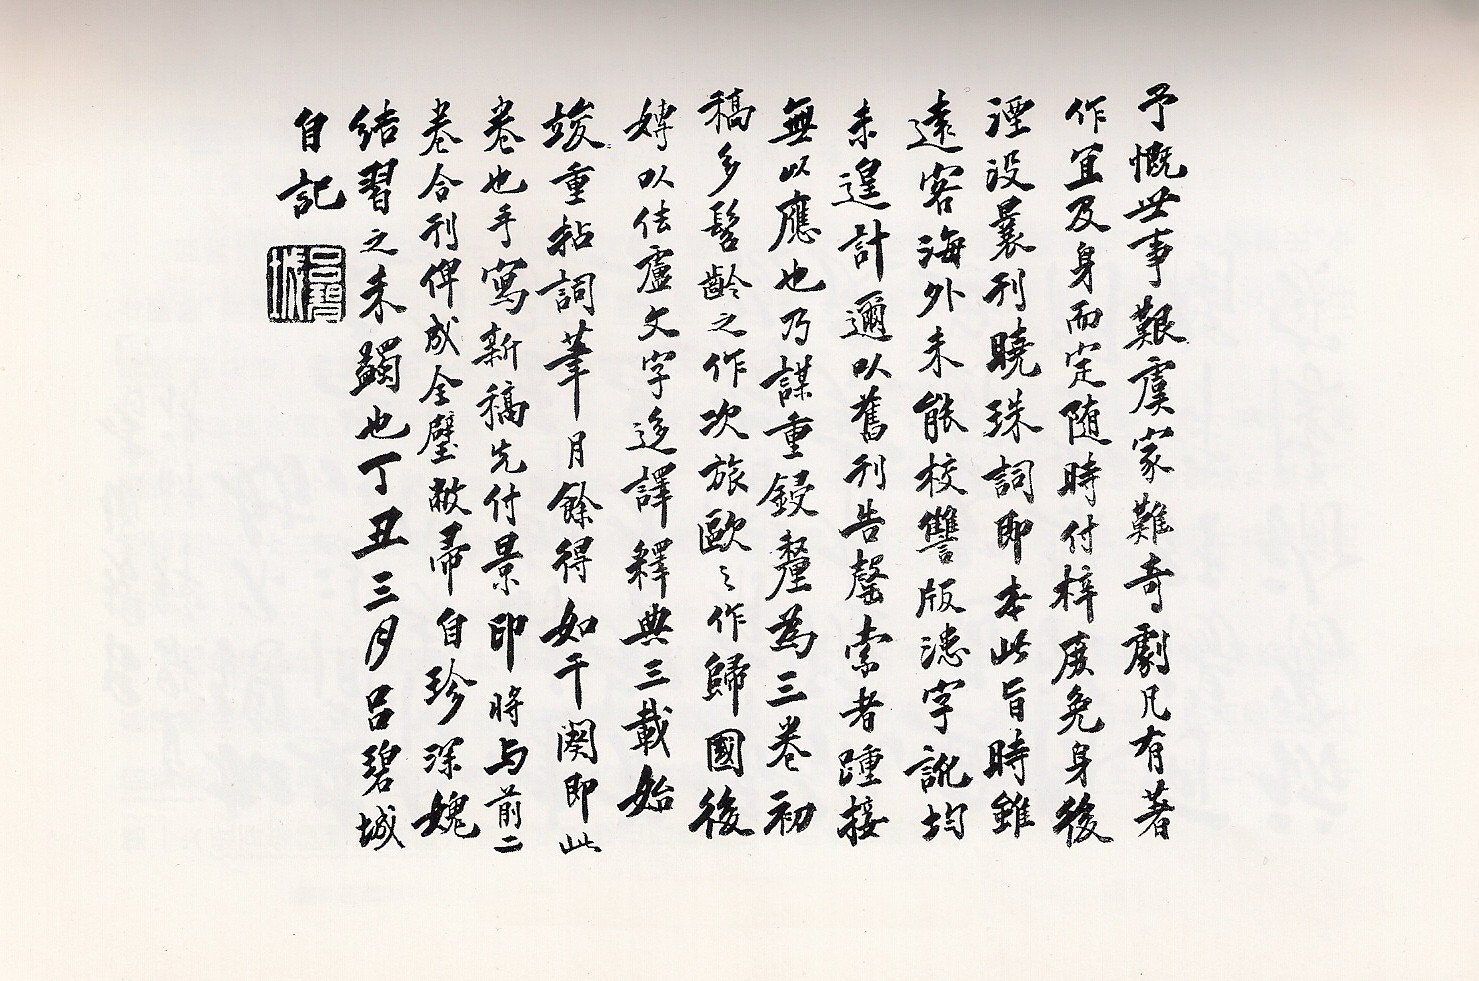 予慨世事艱虞家難奇劇凡有著
作宜及身而定随時付梓庶免身後
湮没曩刊曉珠詞即本此旨時雖
遠客海外未能校讐版漶字訛均
未遑計邇以舊刊告罄索者踵接
無以應也乃謀重鋟釐為三卷初
稿多髫齡之作次旅歐之作歸國後
嫥以佉盧文字迻譯釋典三載始
竣重拈詞筆月餘得如干闋即此
卷也手寫新稿先付景印將与前二
卷合刊俾成全璧敝帚自珍深媿
結習之未蠲也丁丑三月呂碧城
自記
呂碧城